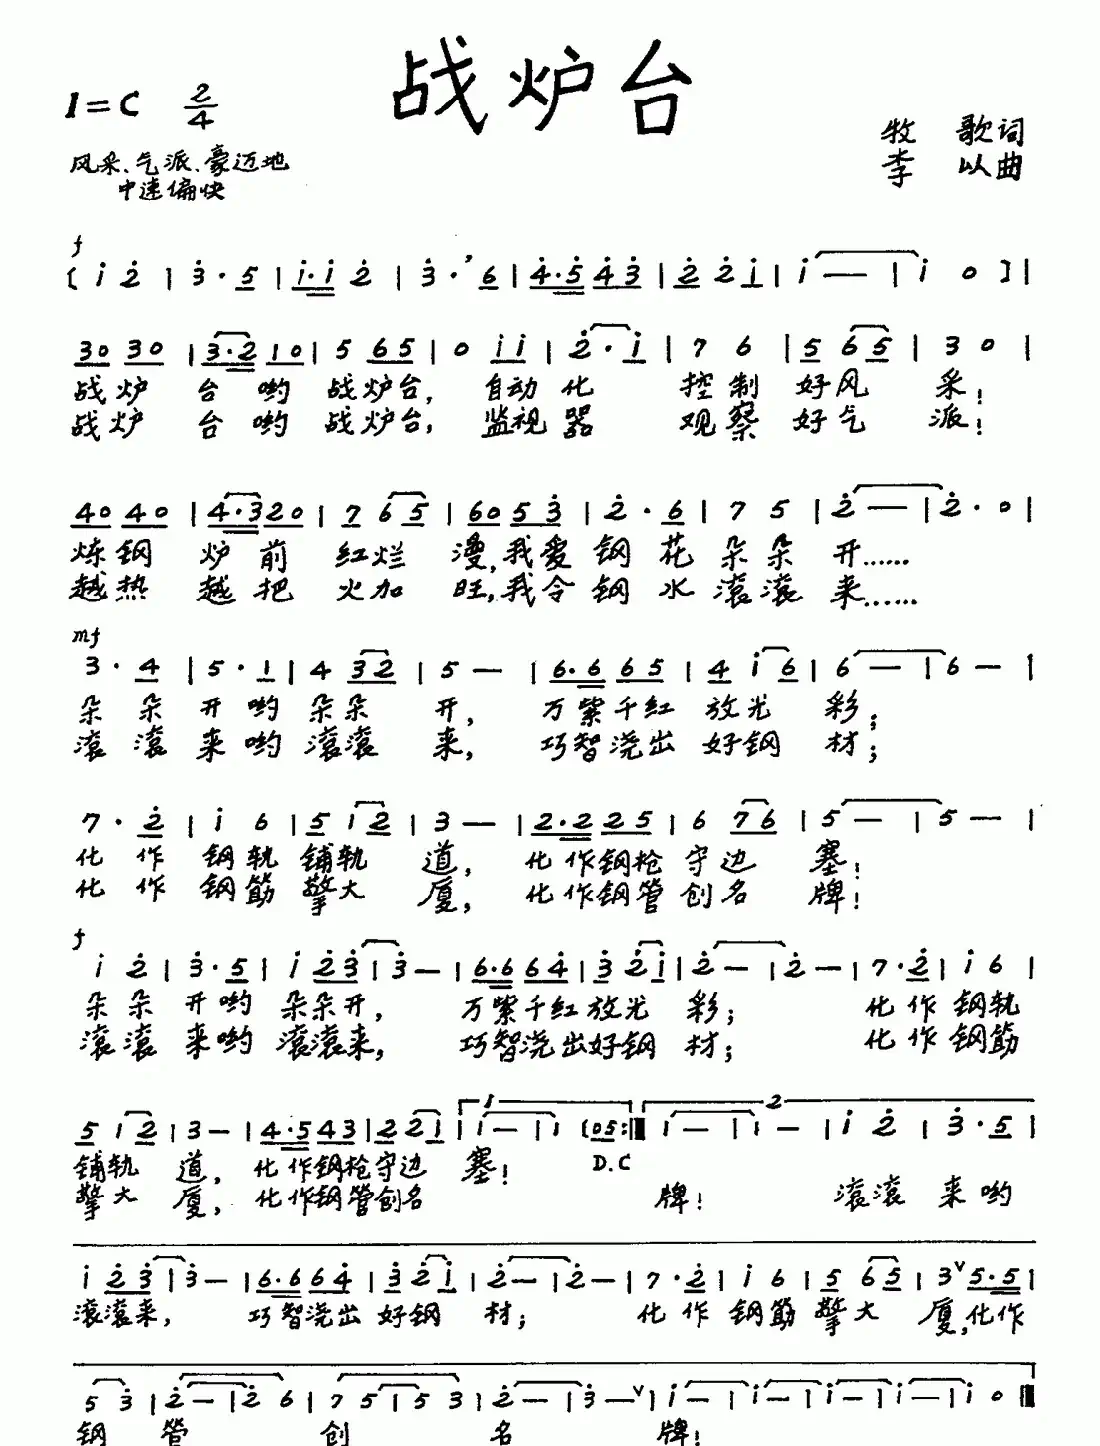 战炉台
1=C 2/4
牧 歌词
风采、气派、豪迈地
李 以曲
中速偏快
f
[ i 2̇ | 3̇ · 5 | i · i 2̇ | 3̇ · ’ 6 | 4̇ · 5̇ 4̇ 3̇ | 2̇ 2̇ i | i — | i 0 ] |
30 30 | 3·2 10 | 5 65 | 0 i i | 2̇ · i | 7 6 | 5 6 5 | 3 0 |
战炉 台 哟 战炉台, 自动化 控制 好风 采!
战炉 台 哟 战炉台, 监视器 观察 好气 派!
40 40 | 4·3 20 | 7 6 5 | 60 5 3̇ | 2̇ · 6 | 7 5 | 2̇ — | 2̇ · 0 |
炼钢 炉 前 红烂 漫,我爱 钢 花 朵 朵 开……
越热 越 把 火加 旺,我令 钢 水 滚滚 来……
mf
3 · 4 | 5 · 1 | 4 32 | 5 — | 6·6 65 | 4 i 6 | 6 — | 6 — |
朵 朵 开 哟 朵朵 开, 万紫千红 放光 彩;
滚 滚 来 哟 滚滚 来, 巧智浇出 好钢 材;
7 · 2̇ | i 6 | 5 1 2 | 3 — | 2·2 25 | 6 76 | 5 — | 5 — |
化 作 钢轨 铺轨 道, 化作钢枪 守边 塞!
化 作 钢筋 擎大 厦, 化作钢管 创名 牌!
f
i 2̇ | 3̇ · 5 | i 2̇ 3̇ | 3̇ — | 6·6 64̇ | 3̇ 2̇ i | 2̇ — | 2̇ — | 7·2̇ | i 6 |
朵 朵 开哟 朵朵开, 万紫千红放光 彩; 化作钢轨
滚滚 来哟 滚滚来, 巧智浇出好钢 材; 化作钢筋
5 1 2 | 3 — | 4·5 43 | 2 2 1 | 1 1 — | 1 (05:‖ 2 1 — | 1 — | i 2̇ | 3̇ · 5 |
铺轨 道, 化作钢枪守边 塞! D.C
擎大 厦, 化作钢管创名 牌! 滚滚 来哟
i 2̇ 3̇ | 3̇ — | 6·6 64̇ | 3̇ 2̇ i | 2̇ — | 2̇ — | 7·2̇ | i 6 | 5 6 5 | 3 ∨ 5·5 |
滚滚来, 巧智浇出 好钢 材; 化 作 钢筋 擎大 厦,化作
5 3̇ | 2̇ — | 2̇ 6 | 7 5 | 5 3 | 2̇ — | 3̇ — ∨ | i — | i — | i — | i — | i 0 ‖
钢 管 创 名 牌!